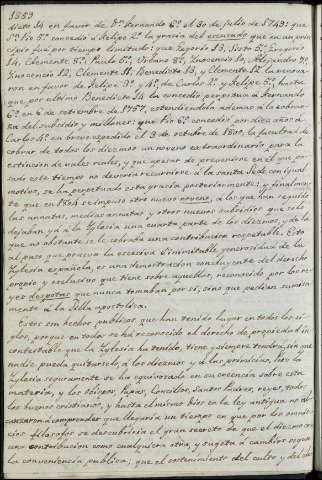 1353
dicto 14 en favor de Dn. Fernando 6º el 30 de Julio de 1749: que
Sn. Pio 5º concedió á Felipe 2º la gracia del escusado que en un prin-
cipio fué por tiempo limitado: que Gregorio 13, Sixto 5º, Gregorio
14, Clemente 8º, Paulo 5º, Urbano 8º, Inocencio 10, Alejandro 7º,
Inocencio 12, Clemente 11, Benedicto 13, y Clemente 12 la renova-
ron en favor de Felipe 3º y 4º, de Carlos 2º y Felipe 5º, hasta
que por ultimo Benedicto 14 la concedió perpetua á Fernando
6º en 6 de setiembre de 1757, estendiendola ademas á la cobran-
za del subsidio y millones: que Pio 6º concedió por diez años á
Carlos 4º en breve espedido el 3 de octubre de 1800, la facultad de
exigir de todos los diezmos un noveno extraordinario para la
estincion de vales reales, y que apesar de prevenirse en él que pa-
sado este tiempo no debería recurrirse á la santa Sede con igual
motivo, se ha perpetuado esta gracia posteriormente: y finalmen-
te que en 1804 se impuso otro nuevo noveno, á los que han seguido
las annatas, medias annatas y otros nuevos subsidios que solo
dejaban ya á la Yglesia una cuarta parte de los diezmos, y de la
que no obstante se le cobraba una contribucion respetable. Esto
al paso que prueba la escesiva é inimitable generosidad de la
Yglesia española, es una demostracion concluyente del derecho
propio y esclusivo que tiene sobre aquellos, reconocido por los re-
yes despotas que nunca tomaban por sí, sino que pedian sumisa-
mente á la Silla apostolica.
Estos son hechos publicos que han tenido lugar en todos los si-
glos, porque en todos se há reconocido el derecho de propiedad in-
contestable que la Yglesia ha tenido, tiene, y siempre tendrá, sin que
nadie pueda quitarselo, á los diezmos y á las primicias, pues la
Yglesia seguramente se ha equivocado en su creencia sobre esta
materia, y los Obispos, Papas, Concilios, Santos Padres, reyes, todos
los buenos cristianos, y hasta el mismo Dios en la ley antigua no al-
canzaron á comprender que llegaría un tiempo en que por los
filosofos se descubriría el gran secreto de que el diezmo era
una contribucion como cualquiera otra, y sugeta á cambios segun
la conveniencia publica; que el sostenimiento del culto y del cle-